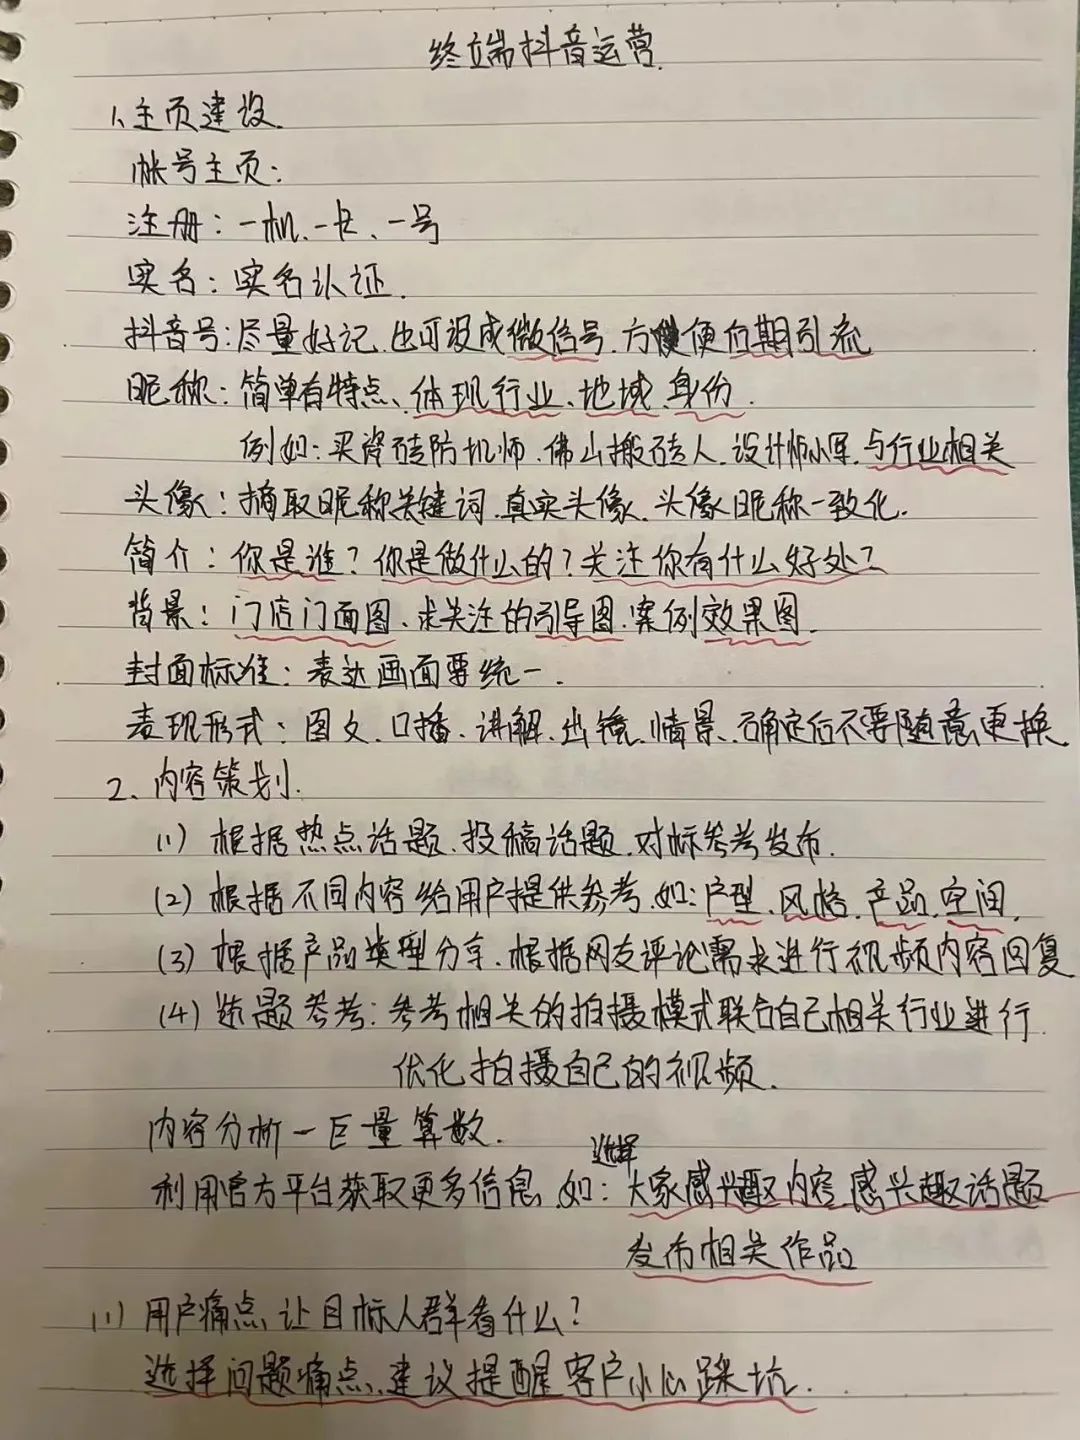 终端抖音运营.
1、主页建设.
帐号主页:
注册:一机、一卡、一号
实名:实名认证.
抖音号:尽量好记.也可设成微信号.方便后期引流
昵称:简单有特点、体现行业、地域.身份.
例如:买瓷砖防坑师.佛山搬砖人.设计师小军.与行业相关
头像:摘取昵称关键词.真实头像.头像昵称一致化.
简介:你是谁?你是做什么的?关注你有什么好处?
背景:门店门面图.求关注的引导图.案例效果图.
封面标准:表达画面要统一.
表现形式:图文.口播.讲解.出镜.情景.确定后不要随意更换
2、内容策划.
(1)根据热点话题.投稿话题.对标参考发布.
(2)根据不同内容给用户提供参考.如:户型.风格.产品.空间.
(3)根据产品类型分享.根据网友评论需求进行视频内容回复
(4)选题参考:参考相关的拍摄模式联合自己相关行业进行
优化拍摄自己的视频.
内容分析一巨量算数.
利用官方平台获取更多信息.如:选择大家感兴趣内容.感兴趣话题
发布相关作品
(1)用户痛点.让目标人群看什么?
选择问题痛点、建议提醒客户小心踩坑.